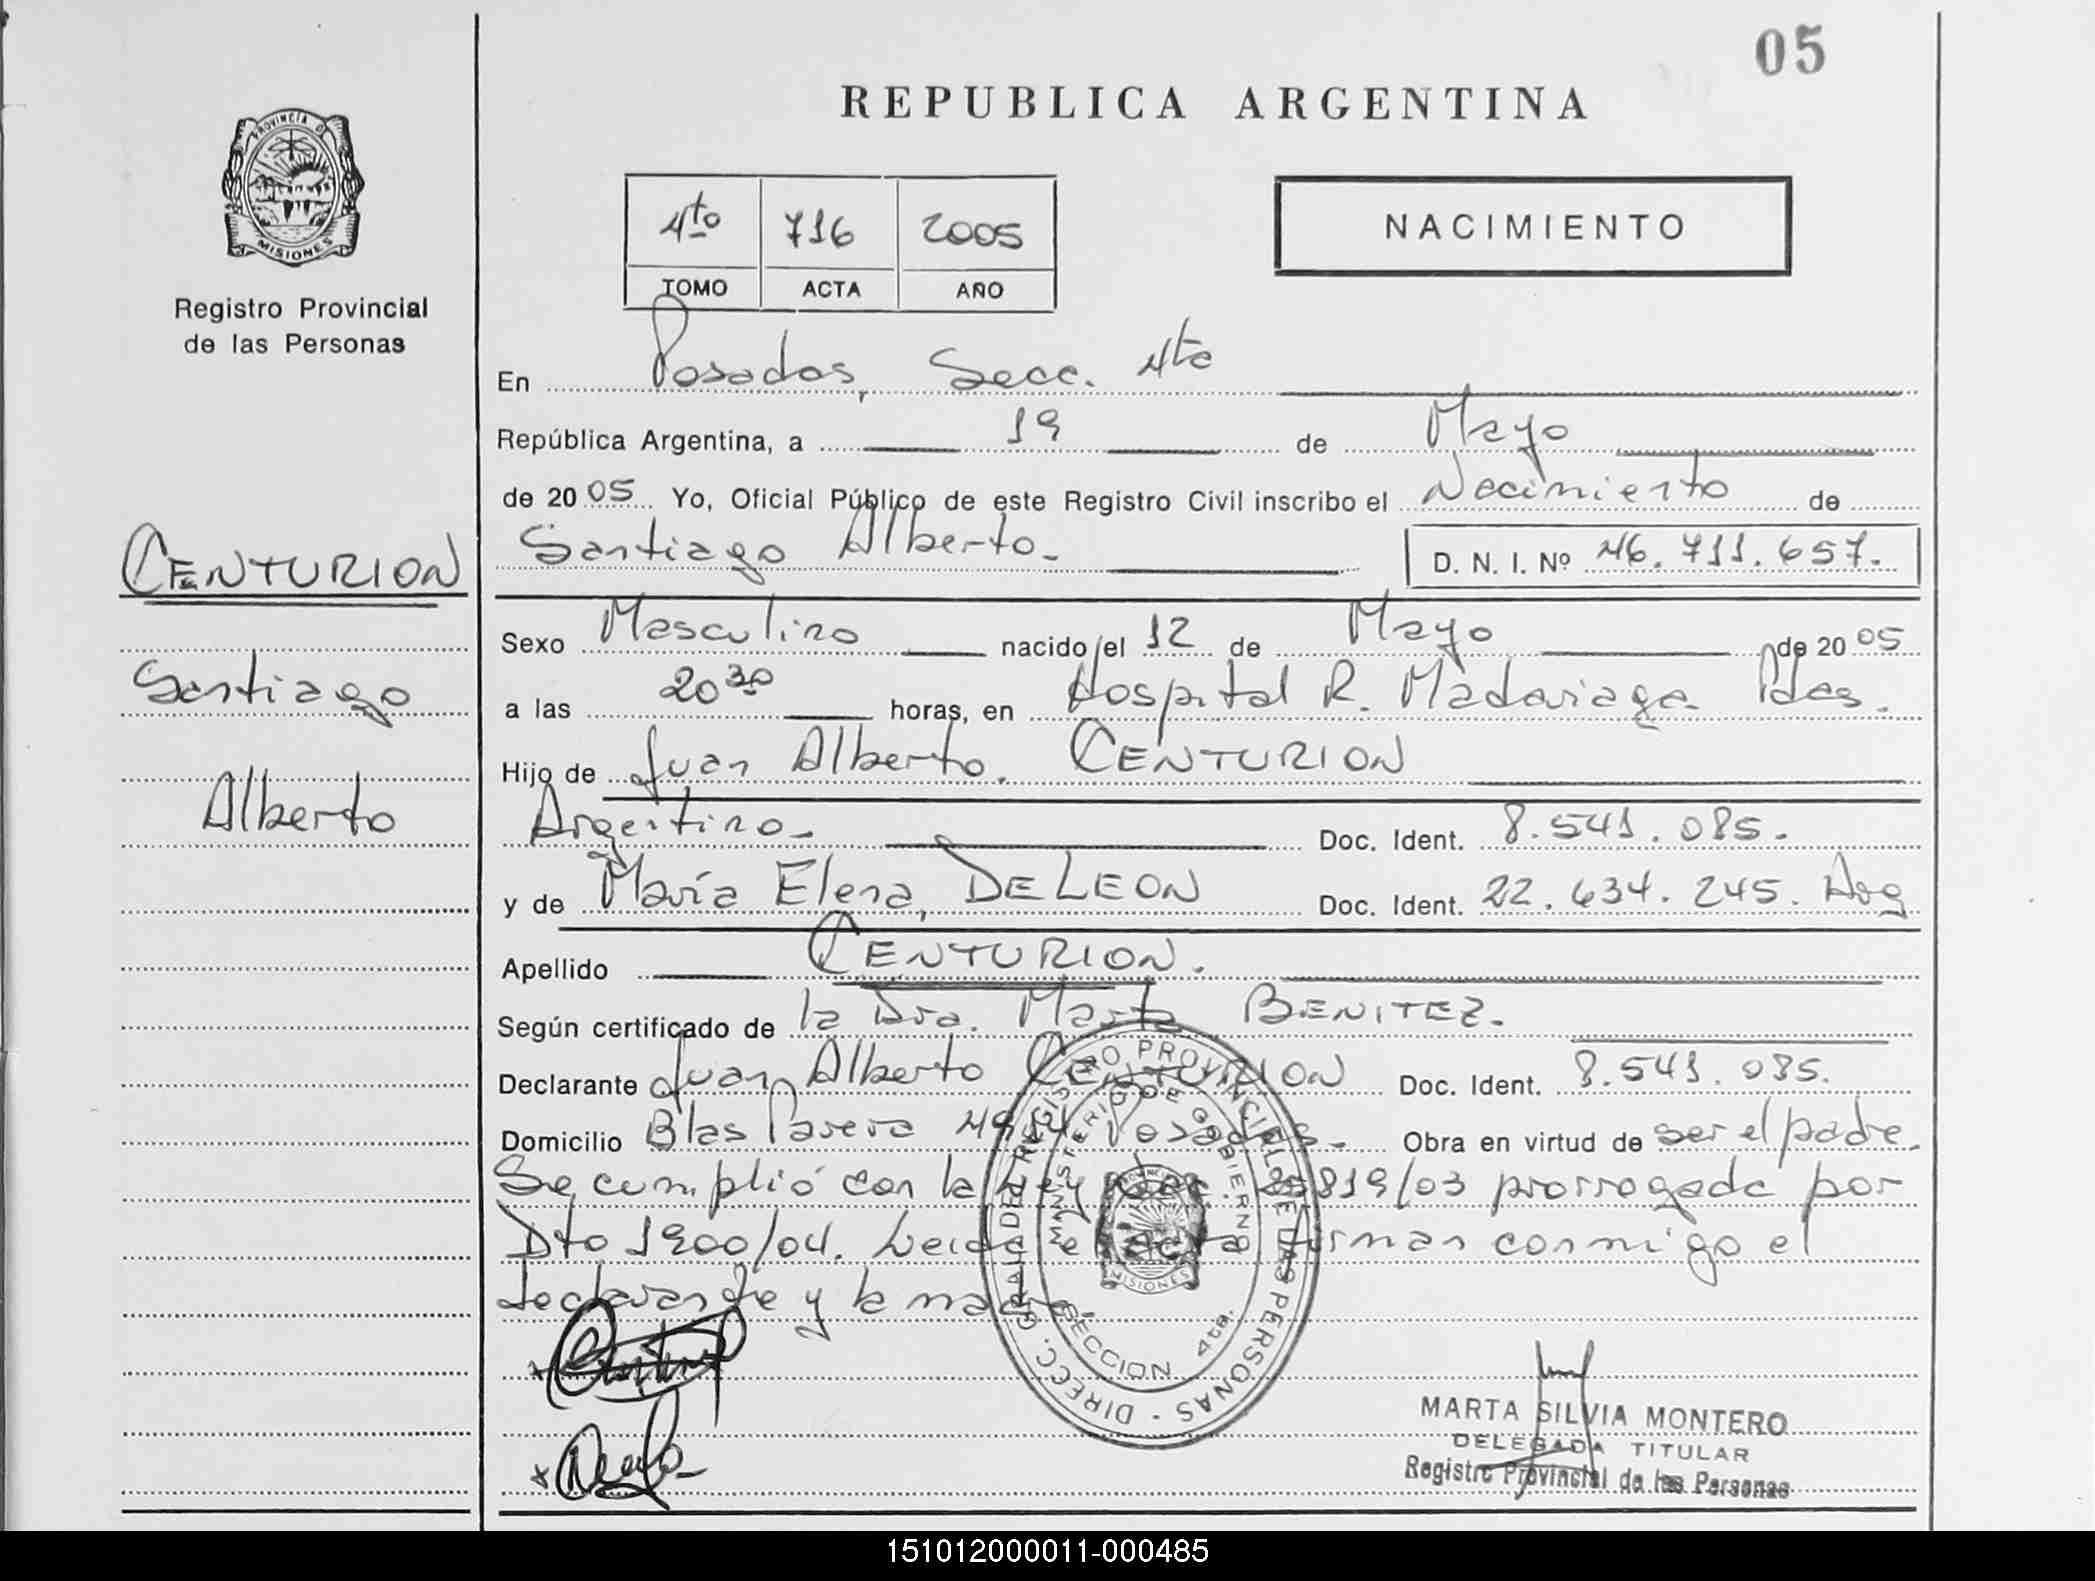 05
REPUBLICA ARGENTINA
PROVINCIA DE
MISIONES
Registro Provincial
de las Personas
4to 716 2005
TOMO ACTA AÑO
NACIMIENTO
En Posadas, Secc. 4ta
República Argentina, a 19 de Mayo
de 2005 Yo, Oficial Público de este Registro Civil inscribo el Nacimiento de
Santiago Alberto. D. N. I. Nº 46.711.657.
CENTURION
Santiago
Alberto
Sexo Masculino nacido el 12 de Mayo de 2005
a las 20 30 horas, en Hospital R. Madariaga Pdas.
Hijo de Juan Alberto. CENTURION
Argentino. Doc. Ident. 8.541.085.
y de María Elena, DE LEON Doc. Ident. 22.634.245. Arg
Apellido CENTURION.
Según certificado de la Dra. Marta BENITEZ.
Declarante Juan Alberto CENTURION Doc. Ident. 8.541.085.
Domicilio Blas Parera Posadas. Obra en virtud de ser el padre.
Se cumplió con la Ley 25819/03 prorrogada por
Dto 1900/04. Leida el Acta firman conmigo el
declarante y la madre
DIRECC. GRAL. DE REGISTRO PROVINCIAL DE LAS PERSONAS
MINISTERIO DE GOBIERNO
MISIONES
SECCION 4ta.
MARTA SILVIA MONTERO
DELEGADA TITULAR
Registro Provincial de las Personas
151012000011-000485